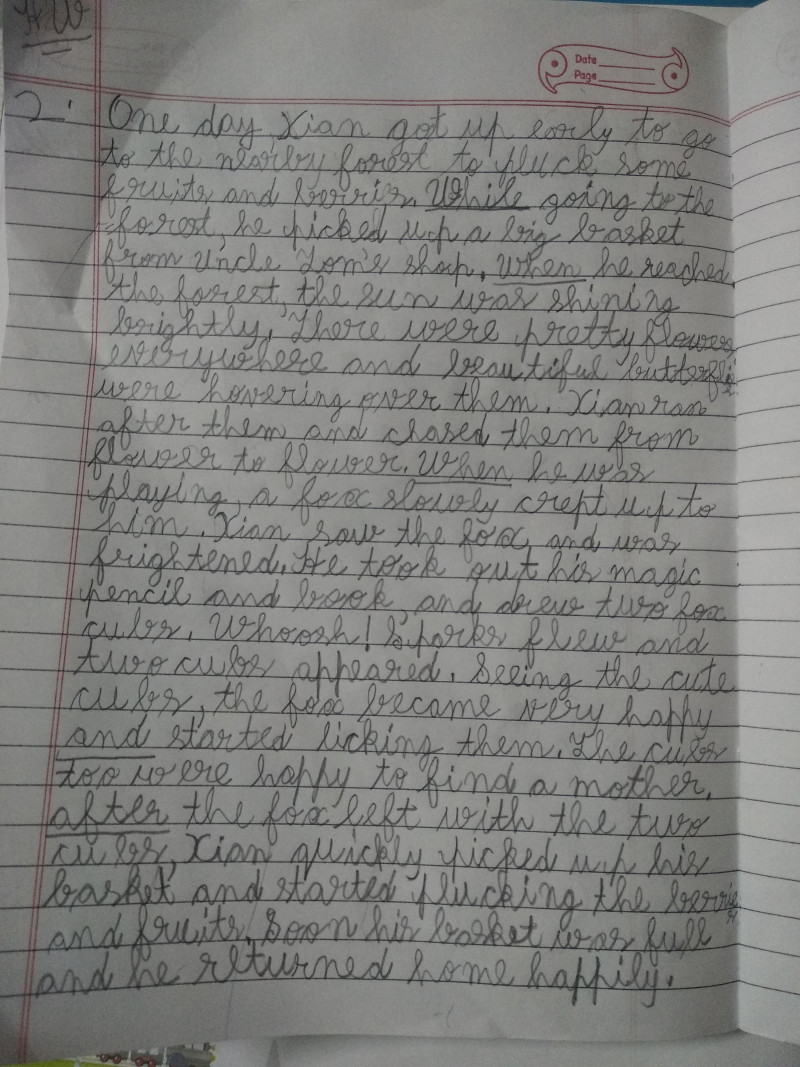 H.W
Date
Page
2. One day, Xian got up early to go
to the nearby forest to pluck some
fruits and berries. While going to the
forest, he picked up a big basket
from Uncle Tom's shop. When he reached
the forest, the sun was shining
brightly. There were pretty flowers
everywhere and beautiful butterflies
were hovering over them. Xian ran
after them and chased them from
flower to flower. When he was
playing, a fox slowly crept up to
him. Xian saw the fox and was
frightened. He took out his magic
pencil and book, and drew two fox
cubs. Whoosh! Sparks flew and
two cubs appeared. Seeing the cute
cubs, the fox became very happy
and started licking them. The cubs
too were happy to find a mother.
after the fox left with the two
cubs, Xian quickly picked up his
basket and started plucking the berries
and fruits. Soon his basket was full
and he returned home happily.